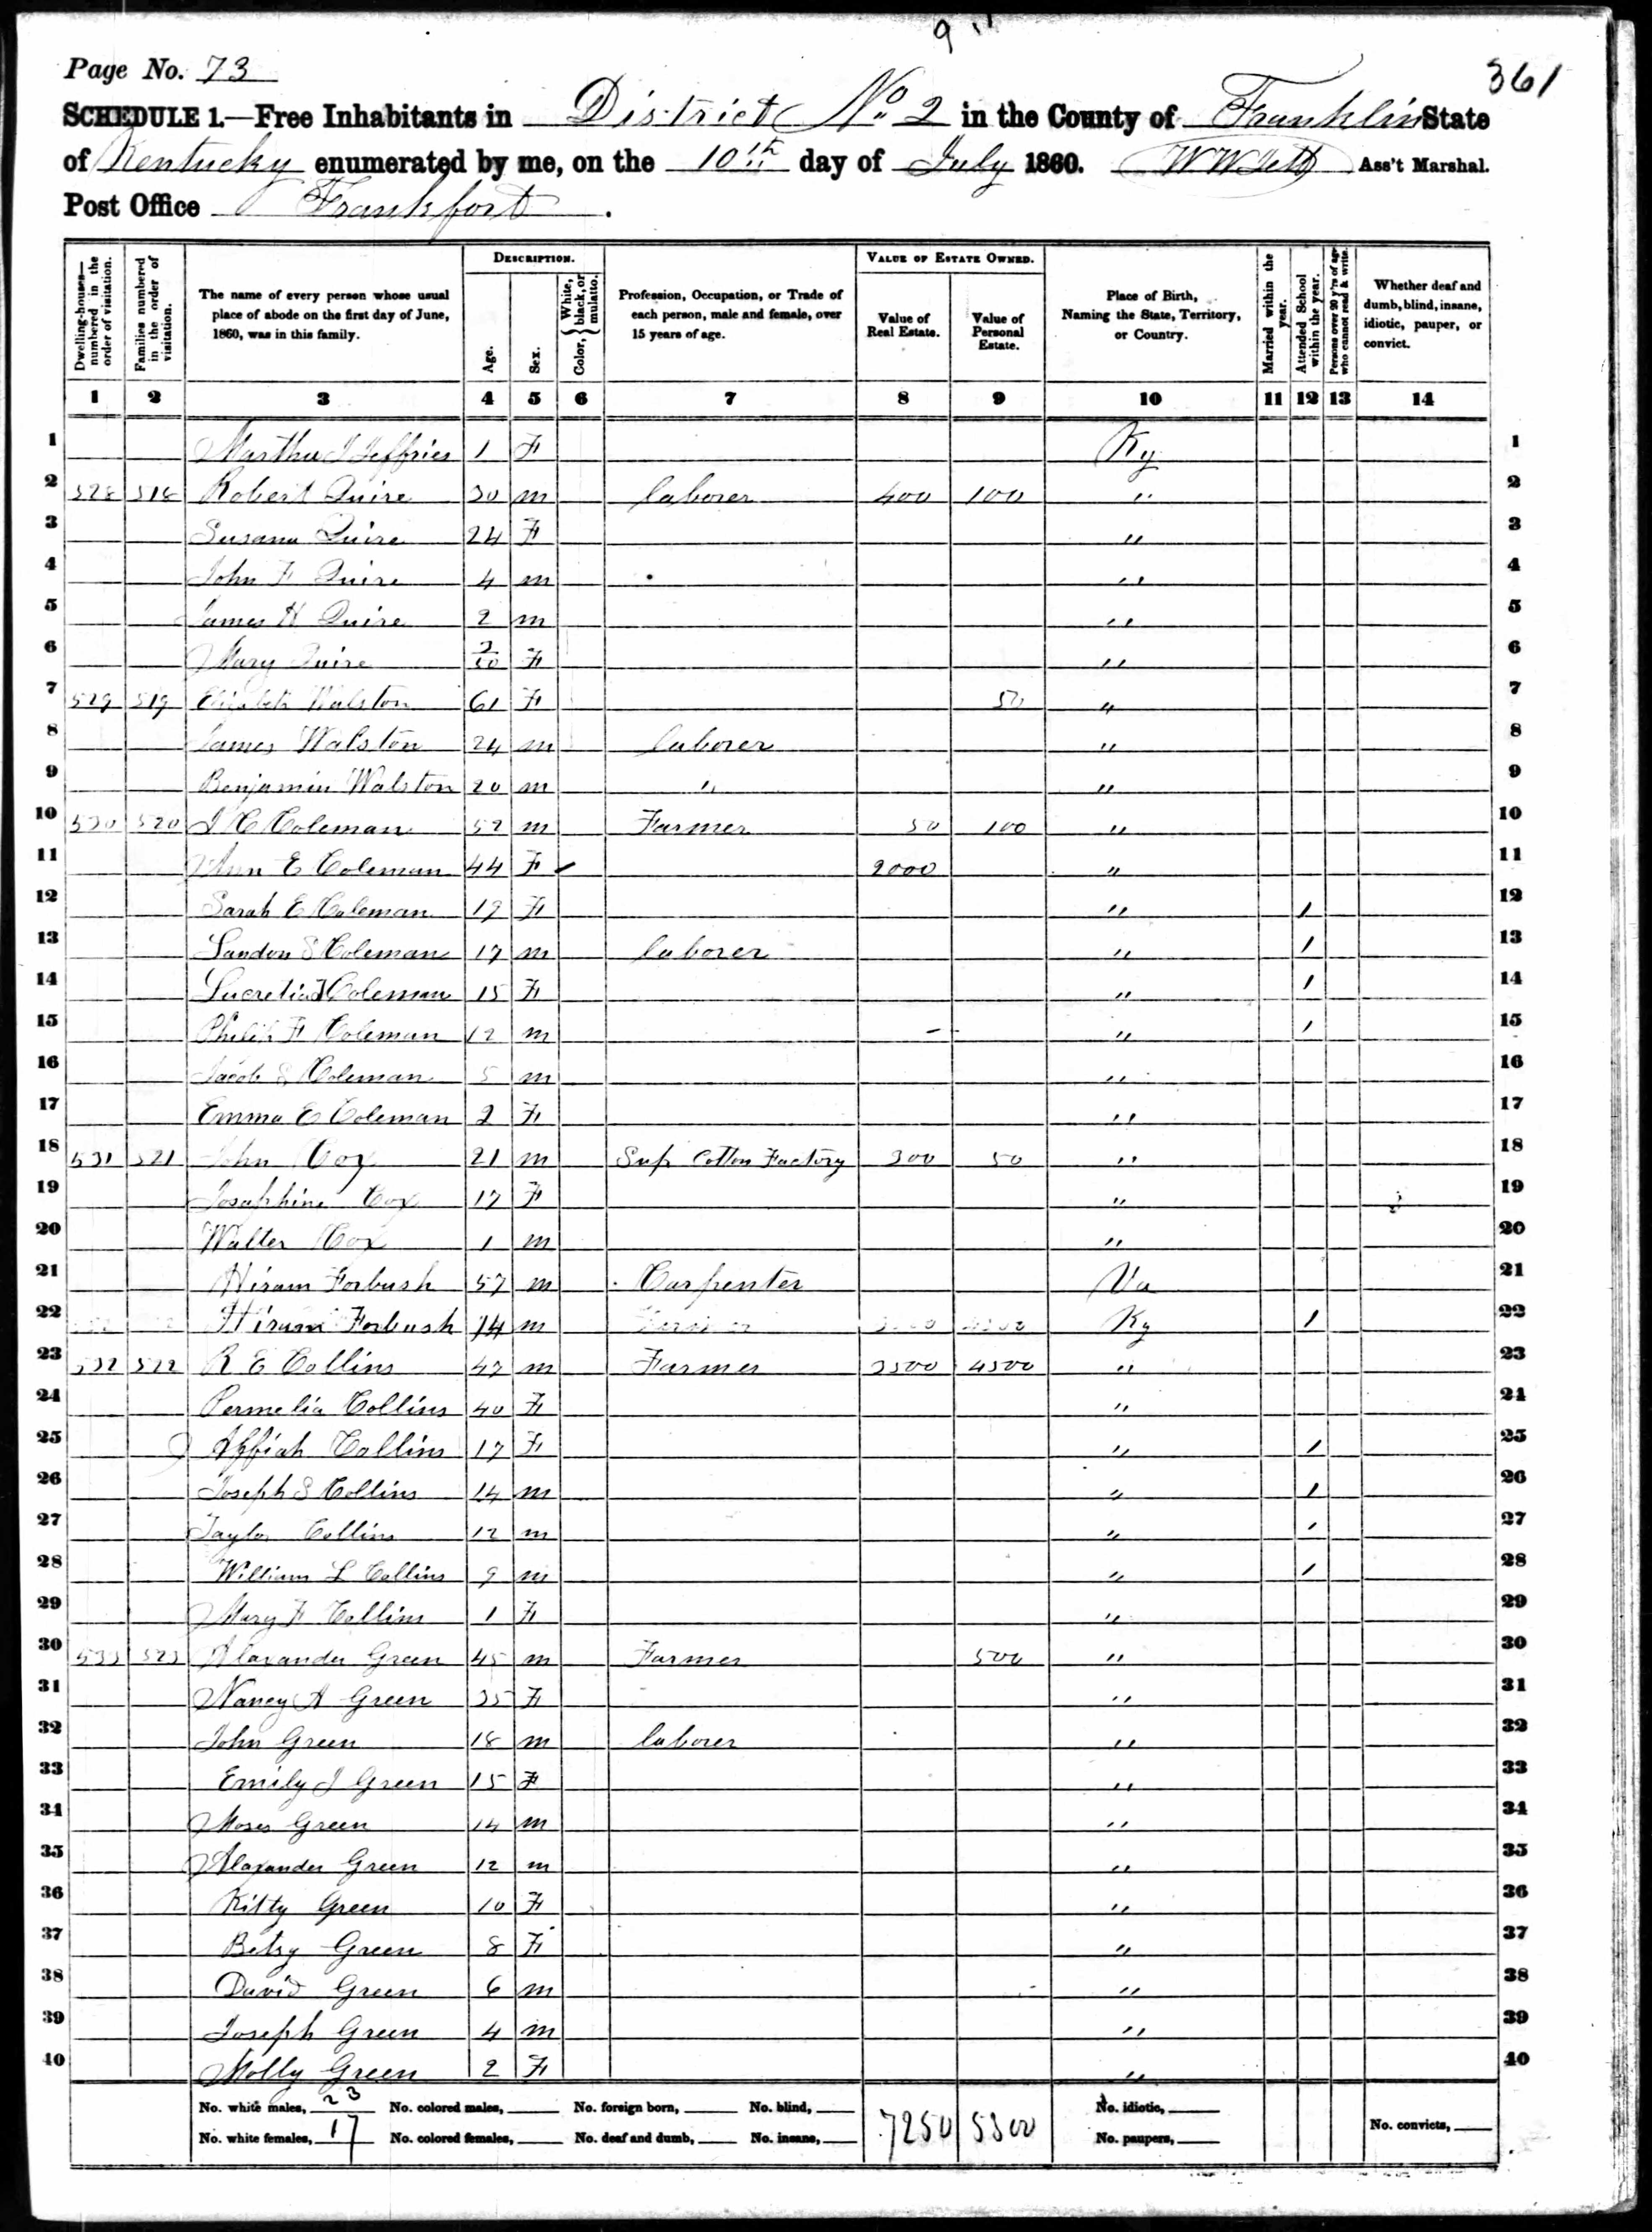 9 "
361
Page No. 73
SCHEDULE 1.—Free Inhabitants in District No 2 in the County of Franklin State
of Kentucky enumerated by me, on the 10th day of July 1860. Ass't Marshal.
Post Office Frankfort.
DESCRIPTION. VALUE OF ESTATE OWNED.
Dwelling-houses—numbered in the order of visitation. Families numbered in the order of visitation. The name of every person whose usual place of abode on the first day of June, 1860, was in this family. Age. Sex. Color, {White, black, or mulatto. Profession, Occupation, or Trade of each person, male and female, over 15 years of age. Value of Real Estate. Value of Personal Estate. Place of Birth, Naming the State, Territory, or Country. Married within the year. Attended School within the year. Persons over 20 y'rs of age who cannot read & write. Whether deaf and dumb, blind, insane, idiotic, pauper, or convict.
1 2 3 4 5 6 7 8 9 10 11 12 13 14
1 Martha J Jeffries 1 F Ky 1
2 528 518 Robert Quire 30 m laborer 400 100 " 2
3 Susana Quire 24 F " 3
4 John F Quire 4 m " 4
5 James H Quire 2 m " 5
6 Mary Quire F " 6
7 529 519 Elizabeth Walston 61 F 50 " 7
8 James Walston 24 m laborer " 8
9 Benjamin Walston 20 m " " 9
10 530 520 J C Coleman 52 m Farmer 50 100 " 10
11 Ann E Coleman 44 F 2000 " 11
12 Sarah E Coleman 19 F " / 12
13 Landon S Coleman 17 m laborer " / 13
14 Lucretia J Coleman 15 F " / 14
15 Philip F Coleman 12 m " / 15
16 Jacob S Coleman 5 m " 16
17 Emma E Coleman 2 F " 17
18 531 521 John Cox 21 m Sup Cotton Factory 300 50 " 18
19 Josephine Cox 17 F " 19
20 Walter Cox 1 m " 20
21 Hiram Forbush 57 m Carpenter Va 21
22 Hiram Forbush 14 m Ky / 22
23 532 522 R E Collins 47 m Farmer 3500 4500 " 23
24 Permelia Collins 40 F " 24
25 Affiah Collins 17 F " / 25
26 Joseph S Collins 14 m " / 26
27 Taylor Collins 12 m " / 27
28 William L Collins 9 m " / 28
29 Mary F Collins 1 F " 29
30 533 523 Alaxander Green 45 m Farmer 500 " 30
31 Nancy A Green 35 F " 31
32 John Green 18 m laborer " 32
33 Emily J Green 15 F " 33
34 Moses Green 14 m " 34
35 Alaxander Green 12 m " 35
36 Kitty Green 10 F " 36
37 Betsy Green 8 F " 37
38 David Green 6 m " 38
39 Joseph Green 4 m " 39
40 Molly Green 2 F " 40
No. white males, 23 No. colored males, No. foreign born, No. blind, 7250 5300 No. idiotic, No. convicts,
No. white females, 17 No. colored females, No. deaf and dumb, No. insane, No. paupers,